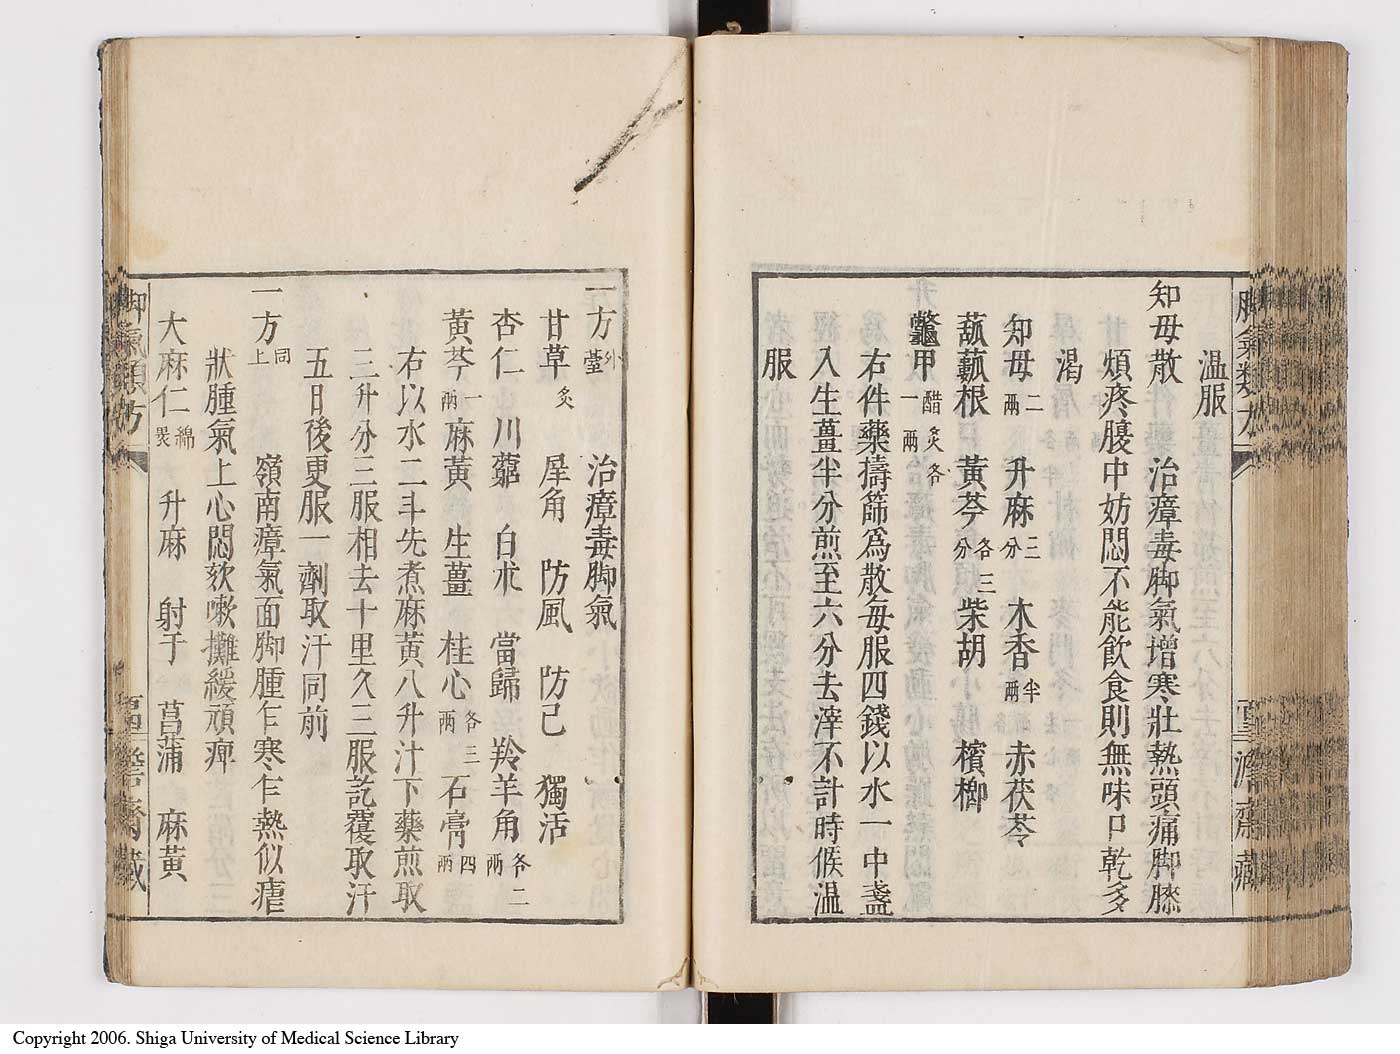 温服
知母散　治瘴毒脚氣増寒壯熱頭痛脚膝
煩疼腹中妨悶不能飲食則無味口乾多
渴
知母二兩　升麻三分　木香半兩　赤茯苓
蓏蓏根　黄芩各三分　柴胡　檳榔
鼈甲醋炙各一兩
右件藥擣篩爲散每服四錢以水一中盞
入生薑半分煎至六分去滓不計時候温
服
一方外臺　治瘴毒脚氣
甘草炙　犀角　防風　防己　獨活
杏仁　川藭　白朮　當歸　羚羊角各二兩
黄芩一兩　麻黄　生薑　桂心各三兩　石膏四兩
右以水二斗先煮麻黄八升汁下藥煎取
三升分三服相去十里久三服訖覆取汗
五日後更服一劑取汗同前
一方同上　嶺南瘴氣面脚腫乍寒乍熱似瘧
狀腫氣上心悶欬嗽攤緩頑痺
大麻仁綿裹　升麻　射干　菖蒲　麻黄
脚氣類方
脚氣類方
藏
Copyright 2006. Shiga University of Medical Science Library